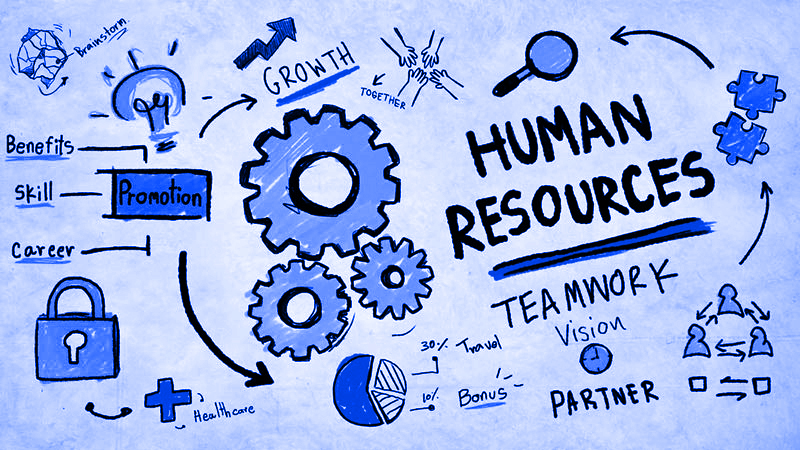 Brainstorm
GROWTH
TOGETHER
Benefits
Skill
Career
Promotion
HUMAN
RESOURCES
TEAMWORK
Vision
PARTNER
30% Travel
10% Bonus
Healthcare